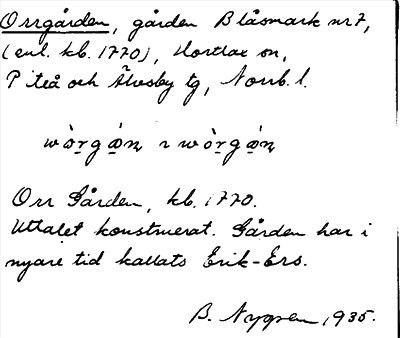 Orrgården, gården Blåsmark nr 7,
(enl. kb. 1770), Hortlax sn,
Piteå och Älvsby tg, Norrb. l.
Orr Gården, kb. 1770.
Uttalet konstruerat. Gården har i
nyare tid kallats Erik-Ers.
B. Nygren 1935.